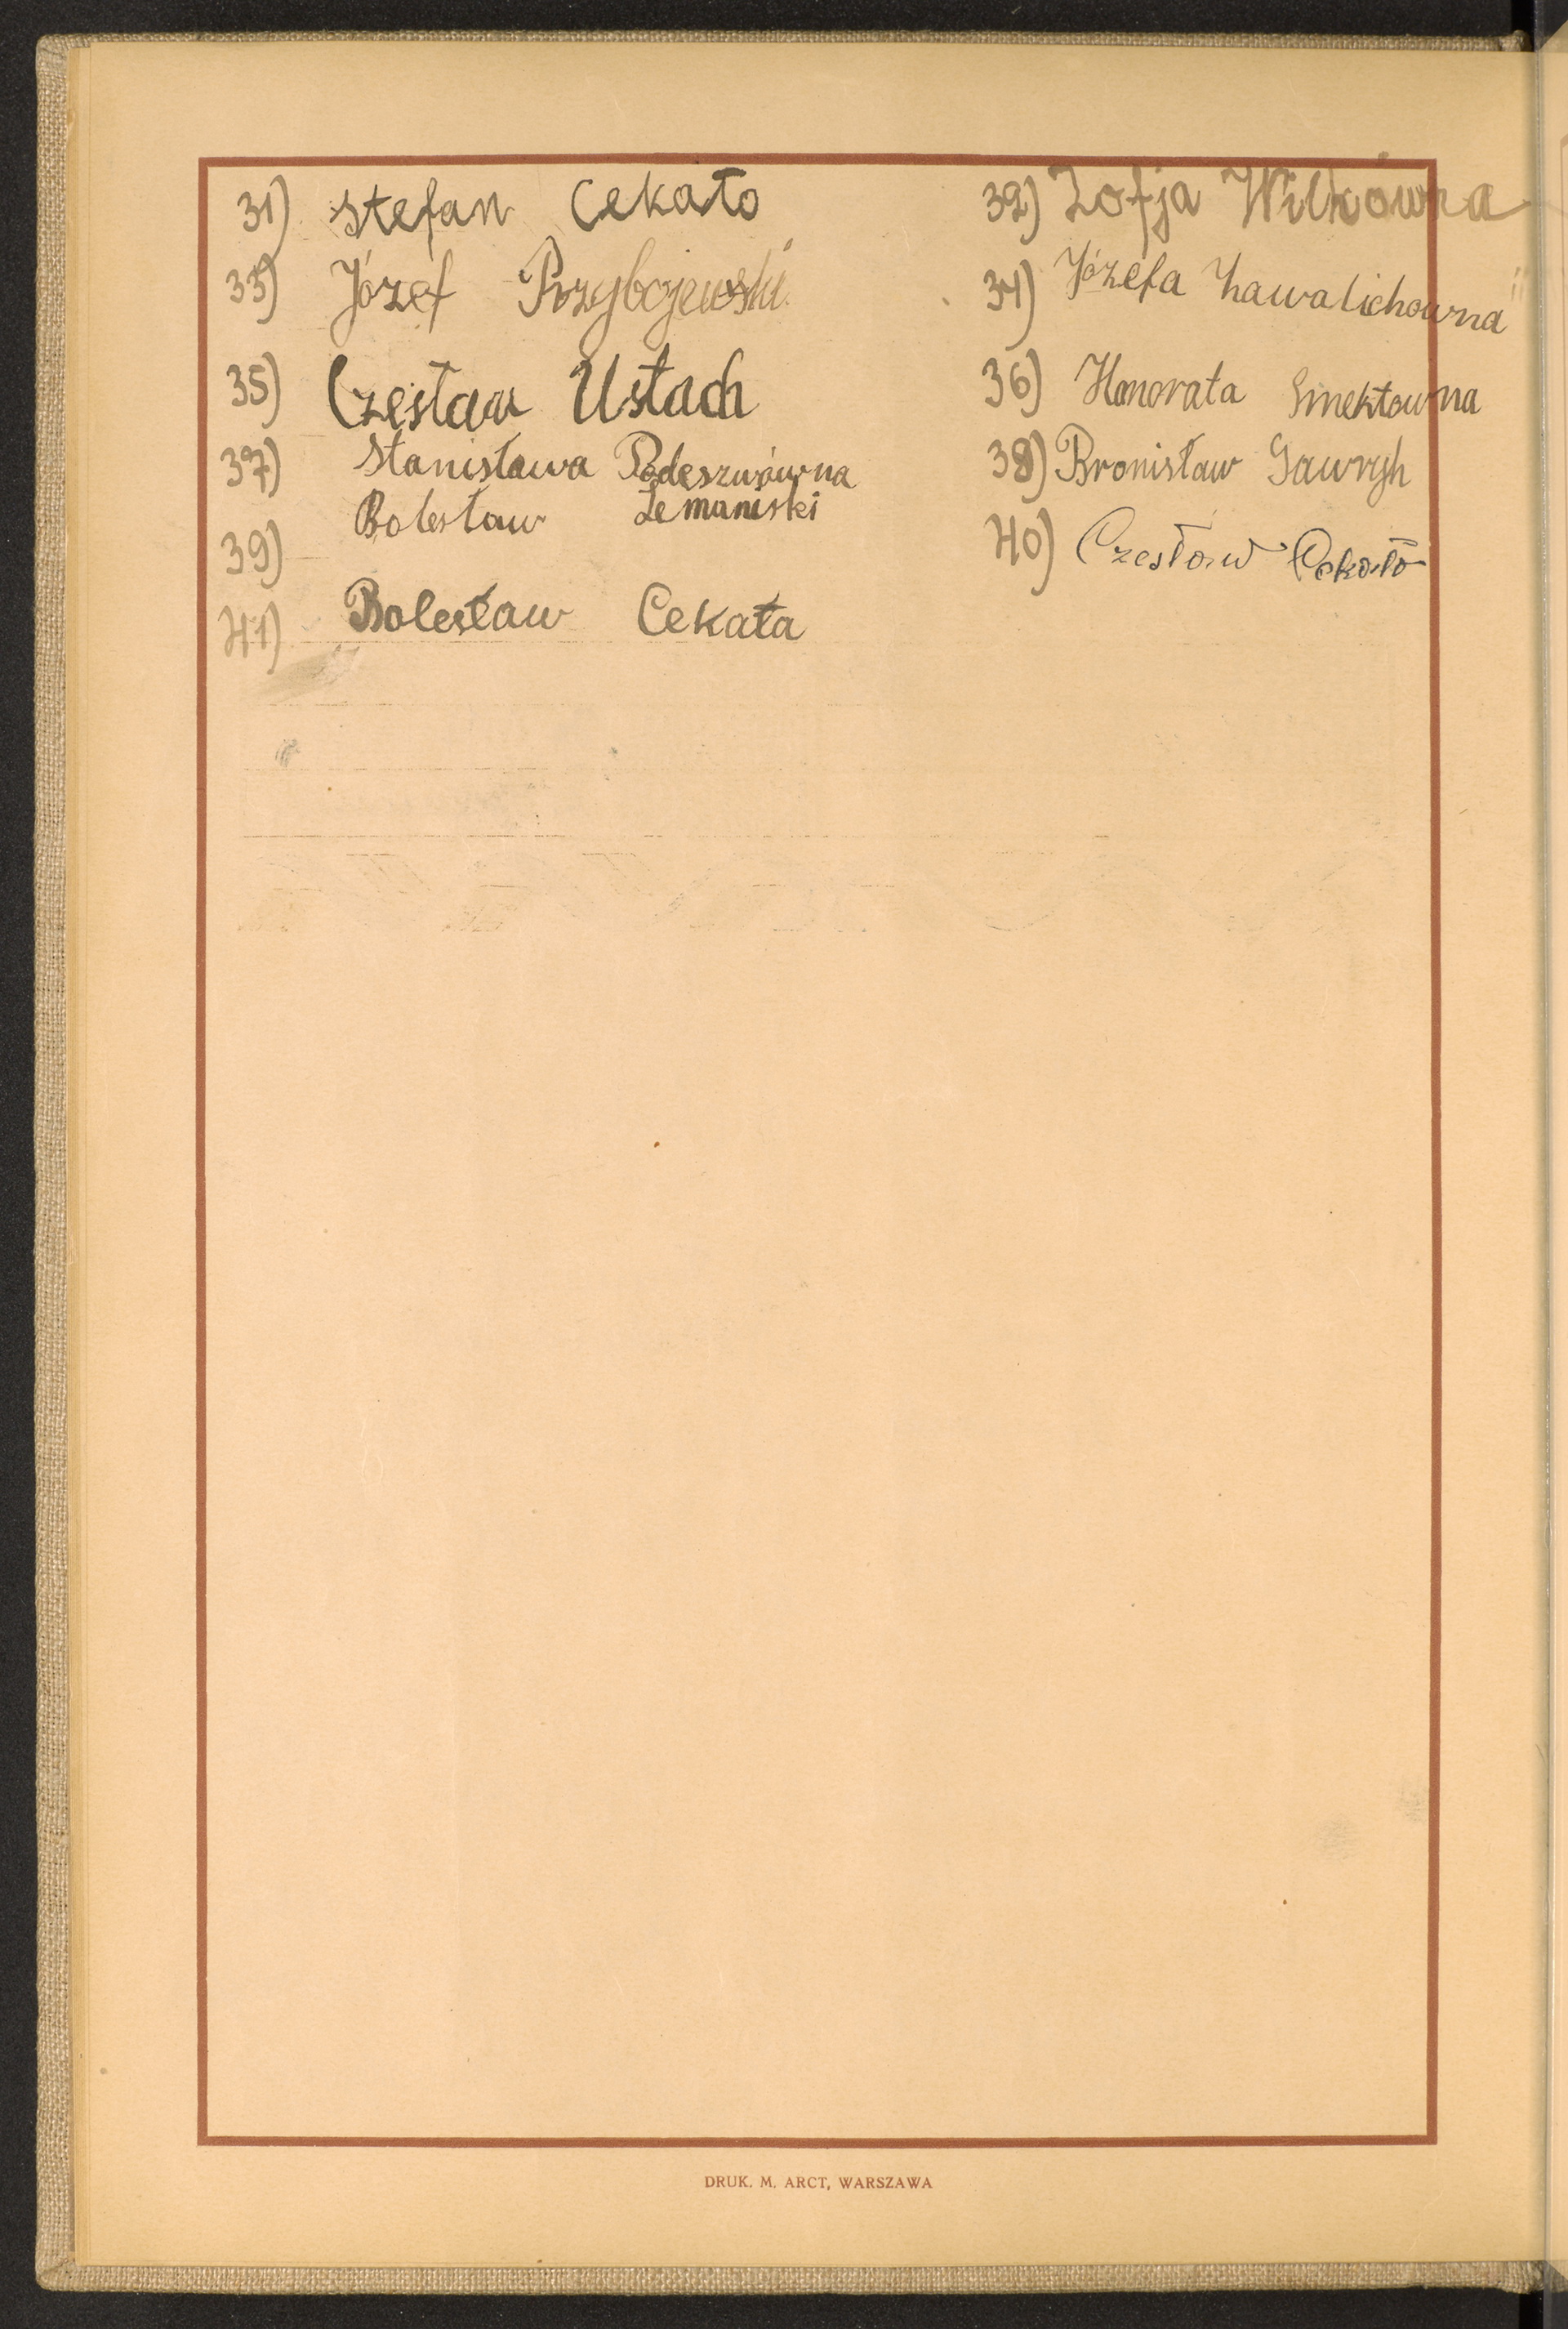 31) Stefan Cekało 32) Zofja Wilkówna
33) Józef Przybojewski 34) Józefa Zawalichowna
35) Czesław Ustach 36) Honorata Smektowna
37) Stanisława Podeszwówna 38) Bronisław Gawryh
39) Bolesław Lemaniski 40) Czesław Cekało
41) Bolesław Cekała
DRUK. M. ARCT, WARSZAWA